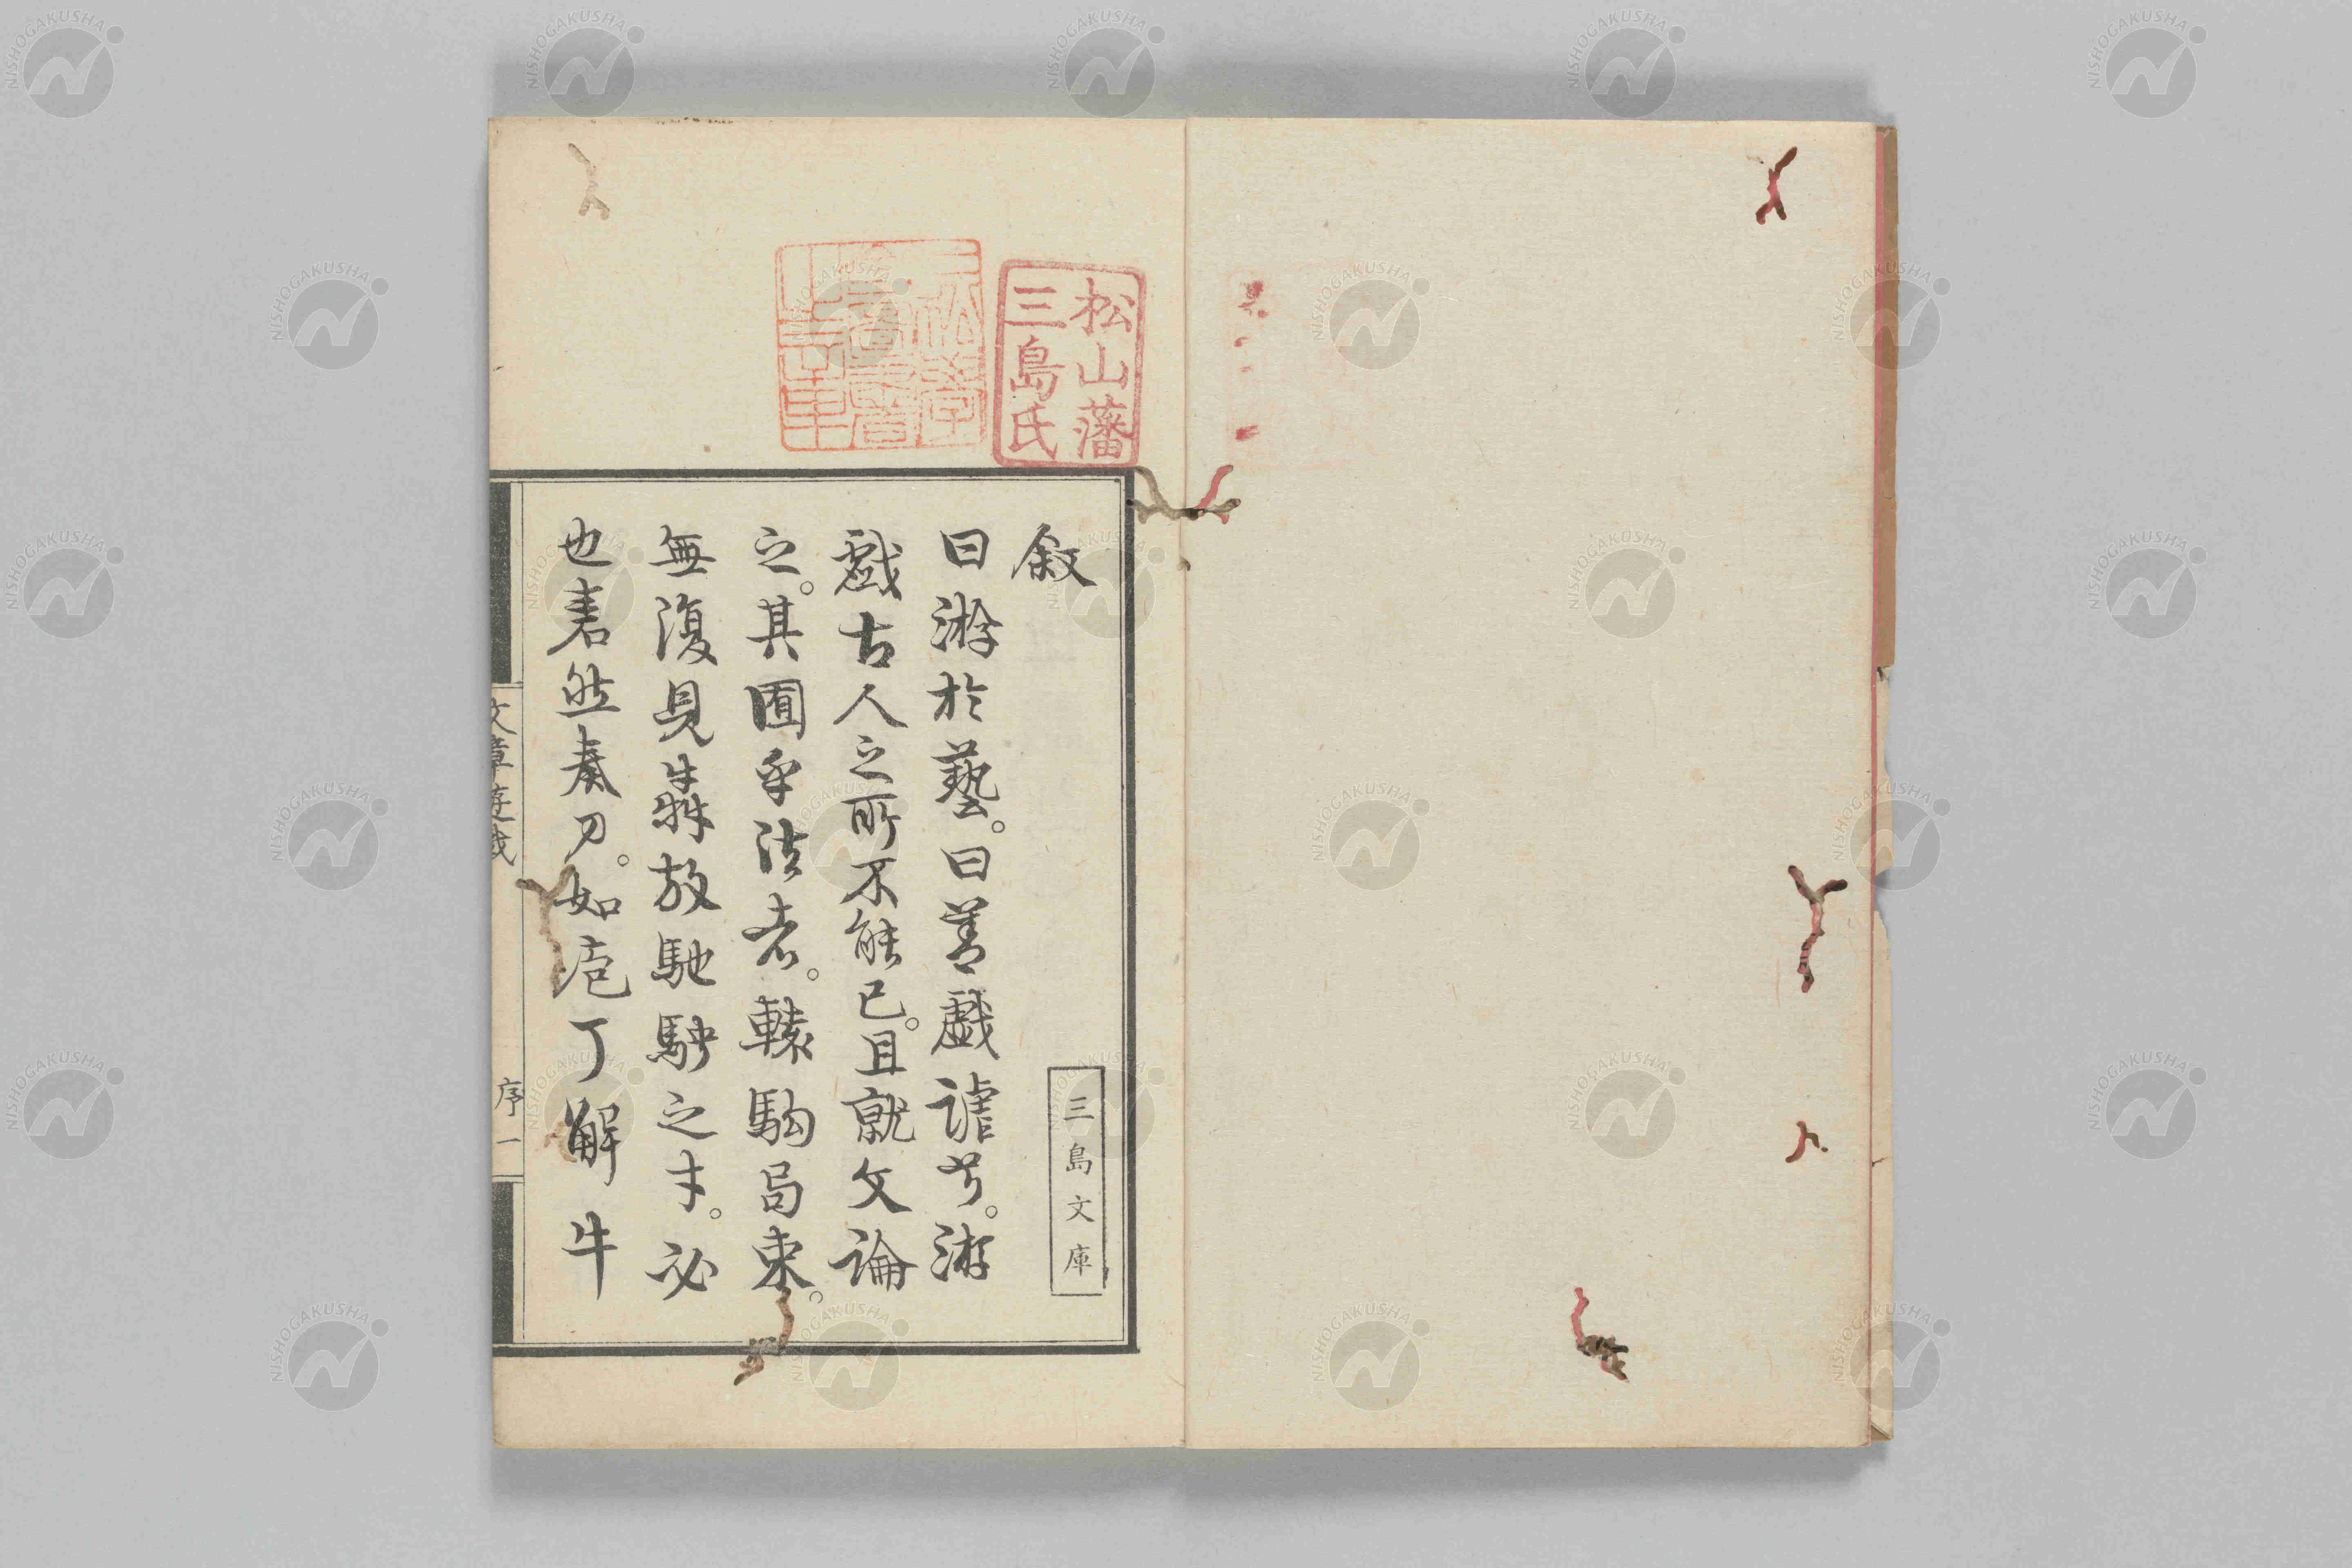 松山藩
三島氏
三島文庫
叙
曰游於藝。曰善戲謔兮。游
戲古人之所不能已。且就文論
之。其囿乎法者。轅駒局束。
無復見犇放馳駛之才。必
也砉然奏刀。如庖丁解牛
文章遊戯
序一
NISHOGAKUSHA